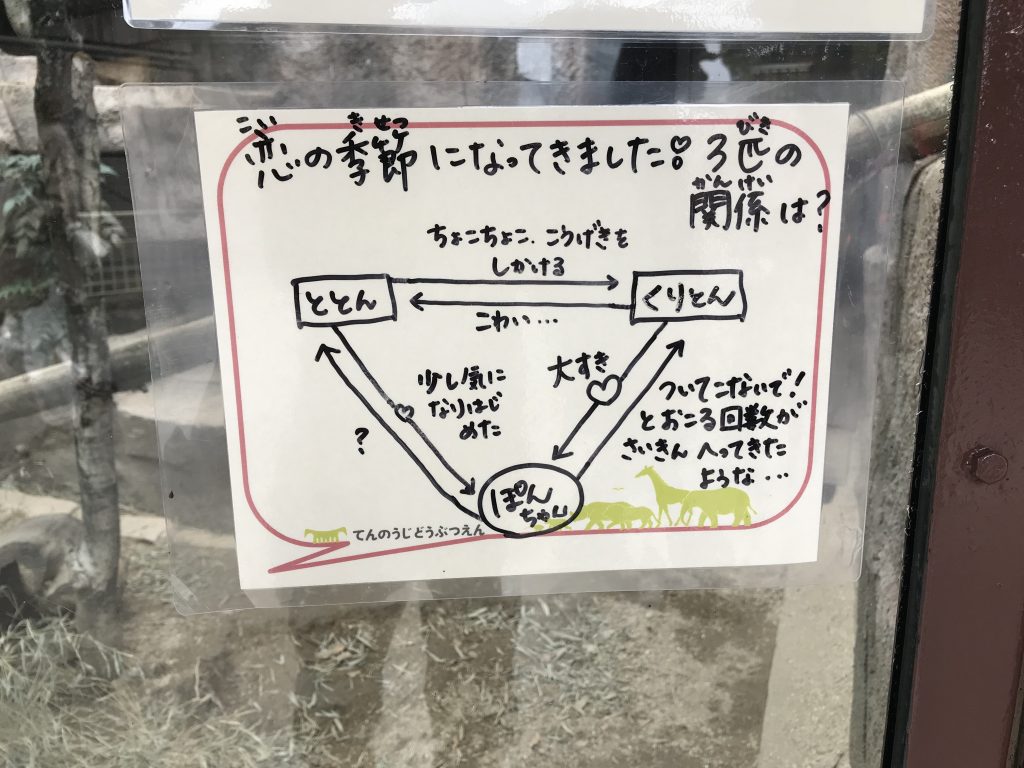 こい きせつ びき
恋の季節になってきました! 3匹の
かんけい
関係は?
ちょこちょこ、こうげきを
しかける
ととん
くりとん
こわい…
少し気に
なりはじ
めた
大すき
ついてこないで!
とおこる回数が
さいきんへってきた
ような…
?
ぽん
ちゃん
てんのうじどうぶつえん